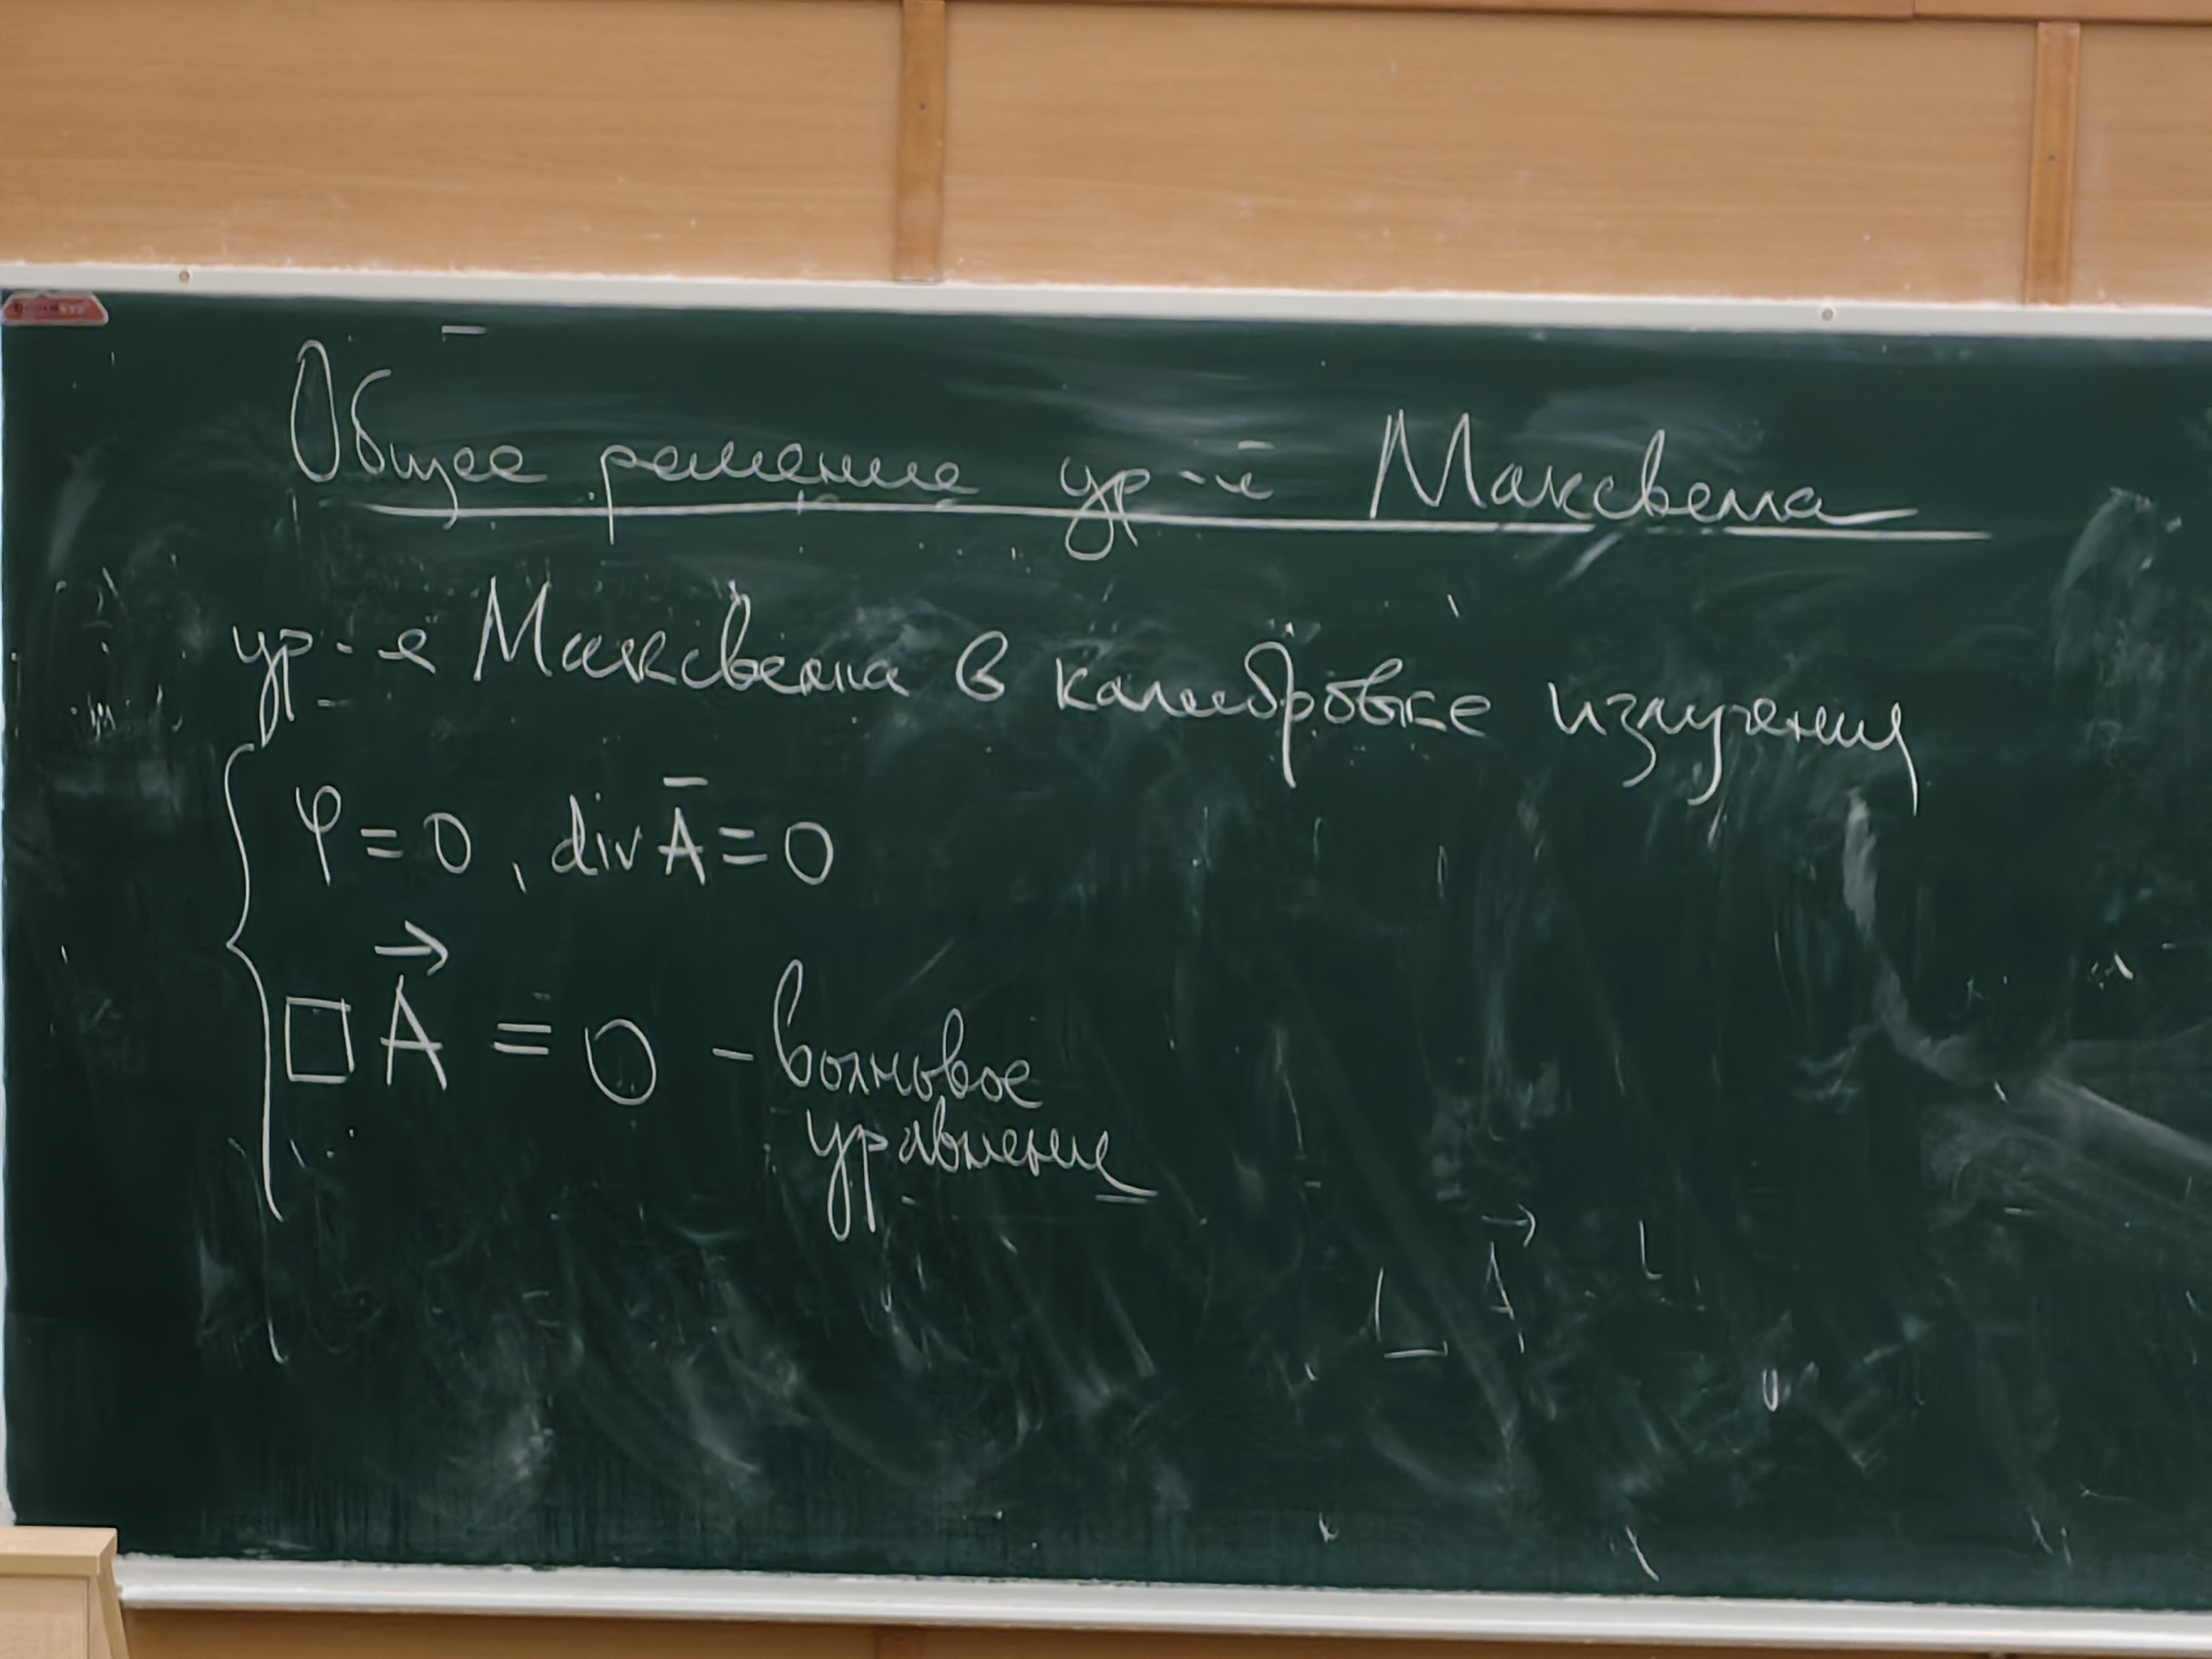 Общее решение ур-й Максвелла
ур-я Максвелла в калибровке излучения
φ = 0, div A̅ = 0
□ A⃗ = 0 - волновое
уравнение